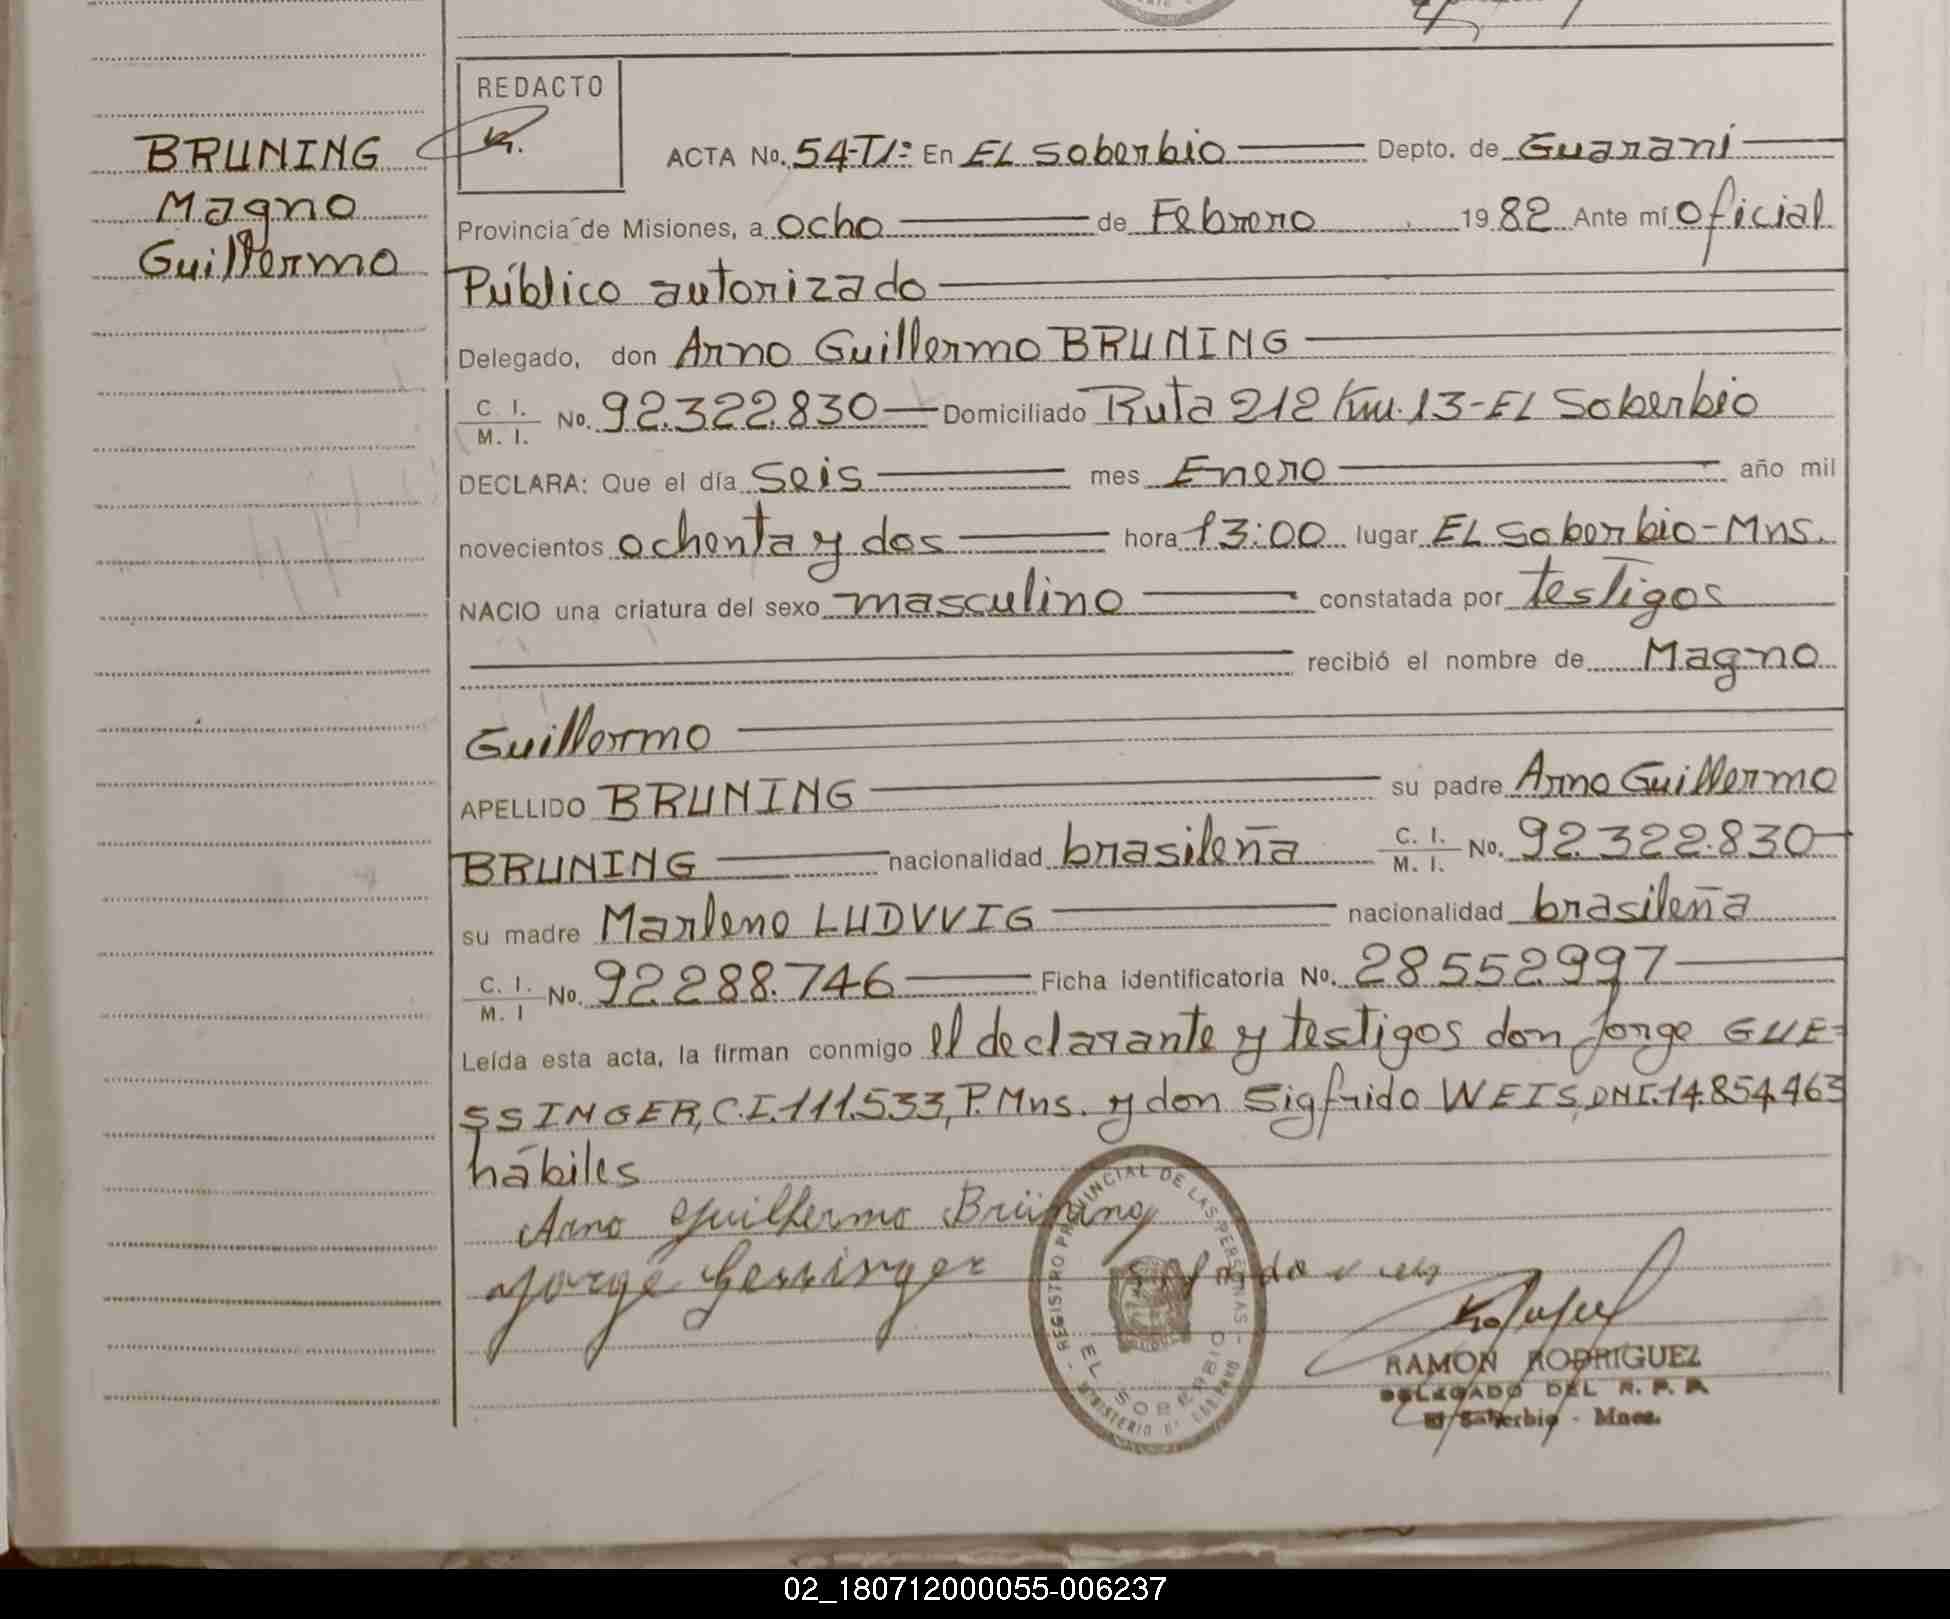 REDACTO
BRUNING
Magno
Guillermo
ACTA No. 54-Tº1º En EL Soberbio Depto. de Guaraní
Provincia de Misiones, a ocho de Febrero 1982 Ante mí oficial
Público autorizado
Delegado, don Arno Guillermo BRUNING
C. I. / M. I. No. 92.322.830 Domiciliado Ruta 212 Km. 13-EL Soberbio
DECLARA: Que el día seis mes Enero año mil
novecientos ochenta y dos hora 13:00 lugar EL Soberbio-Mns.
NACIO una criatura del sexo masculino constatada por testigos
recibió el nombre de Magno
Guillermo
APELLIDO BRUNING su padre Arno Guillermo
BRUNING nacionalidad brasileña C. I. / M. I. No. 92.322.830
su madre Marlene LUDVVIG nacionalidad brasileña
C. I. / M. I No. 92.288.746 Ficha identificatoria No. 28.552.997
Leída esta acta, la firman conmigo el declarante y testigos don Jorge GUE-
SSINGER, C.I. 111.533, P. Mns. y don Sigfrido WEIS, DNI. 14.854.463
hábiles
Arno Guilhermo Brüning
Jorge Gessinger
REGISTRO PROVINCIAL DE LAS PERSONAS
EL SOBERBIO
MINISTERIO DE GOBIERNO
RAMON RODRIGUEZ
DELEGADO DEL R. P. P.
El Soberbio - Mnes.
02_180712000055-006237